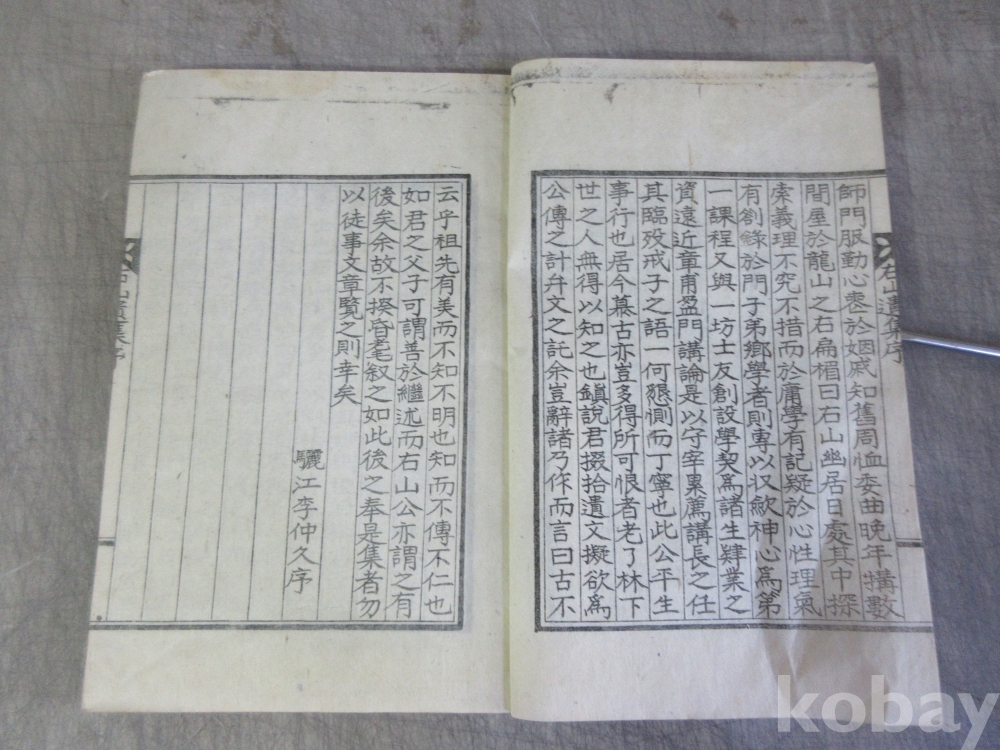 師門服勤心慽於姻戚知舊周恤委曲晚年搆數
間屋於龍山之右扁楣曰右山幽居日處其中探
索義理不究不措而於庸學有記疑於心性理氣
有劄錄於門子弟鄕學者則專以収歛神心爲第
一課程又與一坊士友創設學契爲諸生肄業之
資遠近童甫盈門講論是以守宰累薦講長之任
其臨歿戒子之語一何懇惻而丁寧也此公平生
事行也居今慕古亦豈多得所可恨者老了林下
世之人無得以知之也鎭說君掇拾遺文擬欲爲
公傳之計弁文之託余豈辭諸乃作而言曰古不
右山遺集序
云乎祖先有美而不知不明也知而不傳不仁也
如君之父子可謂善於繼述而右山公亦謂之有
後矣余故不揆昏耄叙之如此後之奉是集者勿
以徒事文章覽之則幸矣
驪江李仲久序
右山遺集序
kobay